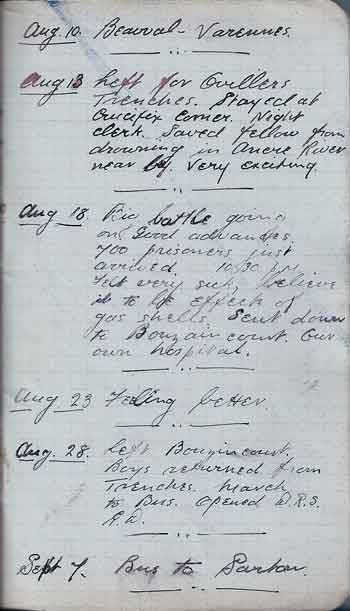 Aug. 10. Beauval - Varennes.
Aug 13 Left for Ovillers
Trenches. Stayed at
Crucifix Corner. Night
clerk. Saved fellow from
drowning in Ancre River
near by. Very exciting
Aug 18. Big battle going
on. Good advances.
700 prisoners just
arrived. 10.30 P.M.
Felt very sick, believe
it to be effect of
gas shells. Sent down
to Bouzincourt. Our
own hospital.
Aug 23 Feeling better.
Aug. 28. Left Bouzincourt.
Boys returned from
Trenches. March
to Bus. opened D.R.S.
Sept 7. Bus to Sarton.